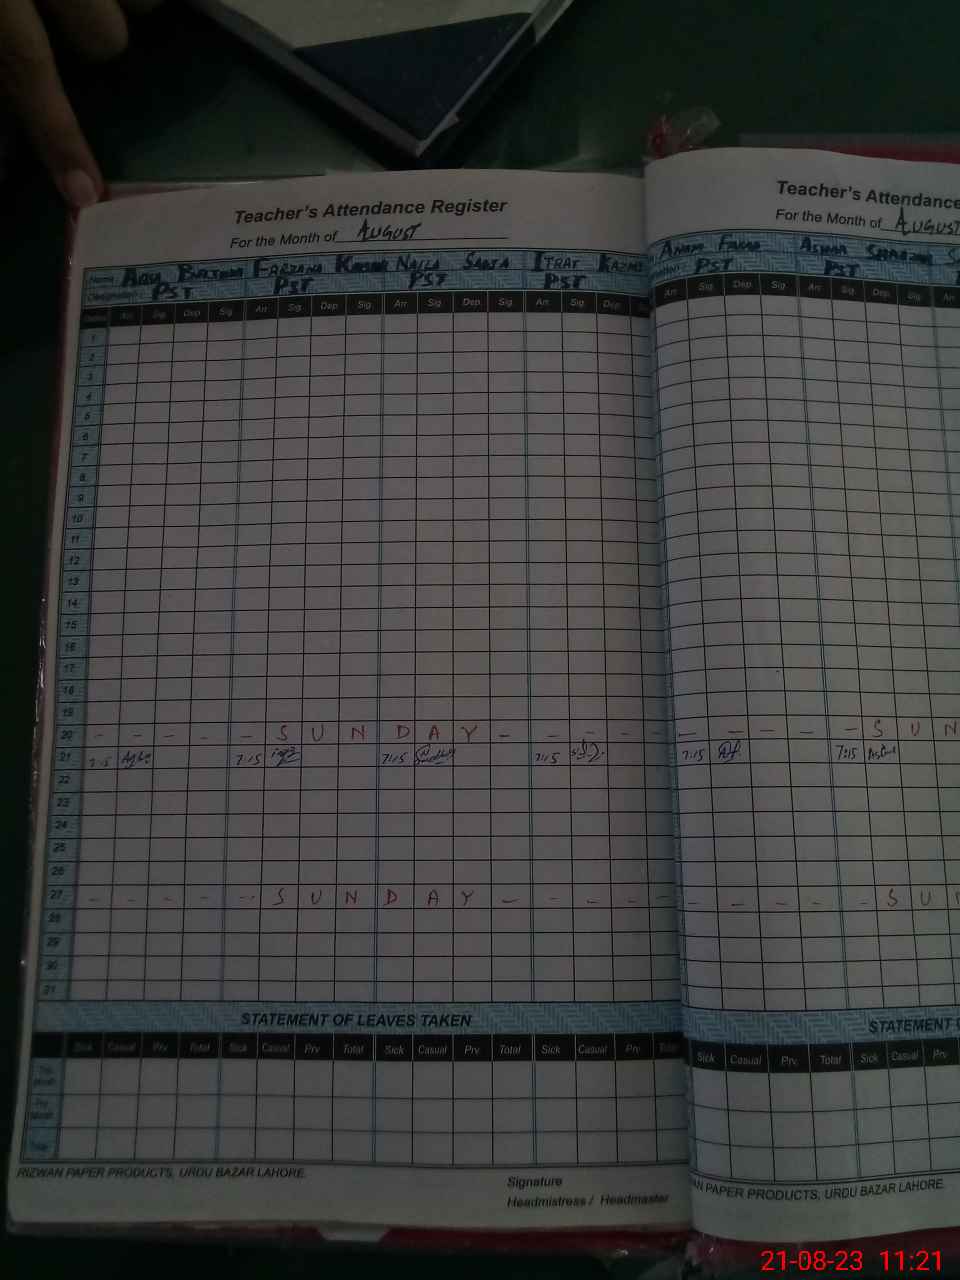 Teacher's Attendance Register
For the Month of AUGUST
Name AQSA BATOOL FARZANA KAUSAR NAILA SANJA ITRAT KAZMI
Designation PST PST PST PST
Dates Arr. Sig. Dep. Sig. Arr. Sig. Dep. Sig. Arr. Sig. Dep. Sig. Arr. Sig. Dep.
1
2
3
4
5
6
7
8
9
10
11
12
13
14
15
16
17
18
19
20 - - - - - S U N D A Y - - - - -
21 7:15 7:15 7:15 7:15
22
23
24
25
26
27 - - - - - S U N D A Y - - - - -
28
29
30
31
STATEMENT OF LEAVES TAKEN
Sick Casual Prv. Total Sick Casual Prv. Total Sick Casual Prv. Total Sick Casual Prv. Total
This Month
Prv. Month
Total
RIZWAN PAPER PRODUCTS, URDU BAZAR LAHORE.
Signature
Headmistress / Headmaster
Teacher's Attendance
For the Month of AUGUST
ANAM ASMAA
PST PST
Arr. Sig. Dep. Sig. Arr. Dep. Sig. Arr.
- - - - - S U N
7:15 7:15
- - - - - S U N
STATEMENT
Sick Casual Prv. Total Sick Casual Prv.
WAN PAPER PRODUCTS, URDU BAZAR LAHORE.
21-08-23 11:21